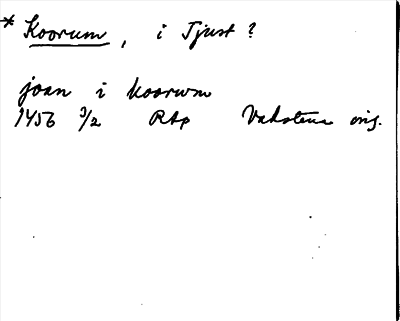 * Koorum, i Tjust?
joan i koorwm
1456 3/2 RAp Vadstena orig.